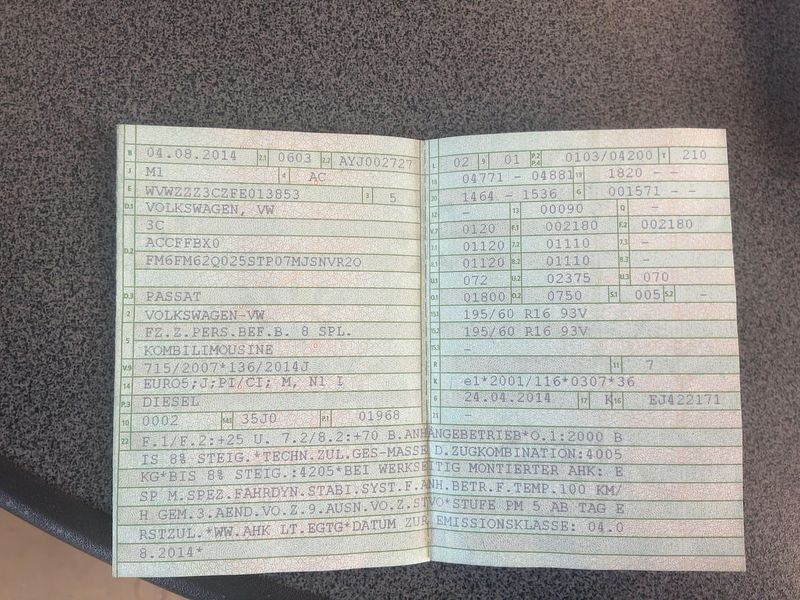 B 04.08.2014 2.1 0603 2.2 AYJ002727
J M1 4 AC
E WVWZZZ3CZFE013853 3 5
D.1 VOLKSWAGEN, VW
D.2 3C
ACCFFBX0
FM6FM62Q025STP07MJSNVR2O
D.3 PASSAT
2 VOLKSWAGEN-VW
5 FZ.Z.PERS.BEF.B. 8 SPL.
KOMBILIMOUSINE
V.9 715/2007*136/2014J
14 EURO5;J;PI/CI; M, N1 I
P.3 DIESEL
10 0002 14.1 35J0 P.1 01968
L 02 9 01 P.2 P.4 0103/04200 T 210
18 04771 - 04881 19 1820 - -
20 1464 - 1536 G 001571 - -
12 - 13 00090 Q -
V.7 0120 F.1 002180 F.2 002180
7.1 01120 7.2 01110 7.3 -
8.1 01120 8.2 01110 8.3 -
U.1 072 U.2 02375 U.3 070
O.1 01800 O.2 0750 S.1 005 S.2 -
15.1 195/60 R16 93V
15.2 195/60 R16 93V
15.3 -
R 11 7
K e1*2001/116*0307*36
6 24.04.2014 17 K 16 EJ422171
21 -
22 F.1/F.2:+25 U. 7.2/8.2:+70 B.ANHÄNGEBETRIEB*O.1:2000 B
IS 8% STEIG.*TECHN.ZUL.GES-MASSE D.ZUGKOMBINATION:4005
KG*BIS 8% STEIG.:4205*BEI WERKSEITIG MONTIERTER AHK: E
SP M.SPEZ.FAHRDYN.STABI.SYST.F.ANH.BETR.F.TEMP.100 KM/
H GEM.3.AEND.VO.Z.9.AUSN.VO.Z.STVO*STUFE PM 5 AB TAG E
RSTZUL.*WW.AHK LT.EGTG*DATUM ZUR EMISSIONSKLASSE: 04.0
8.2014*